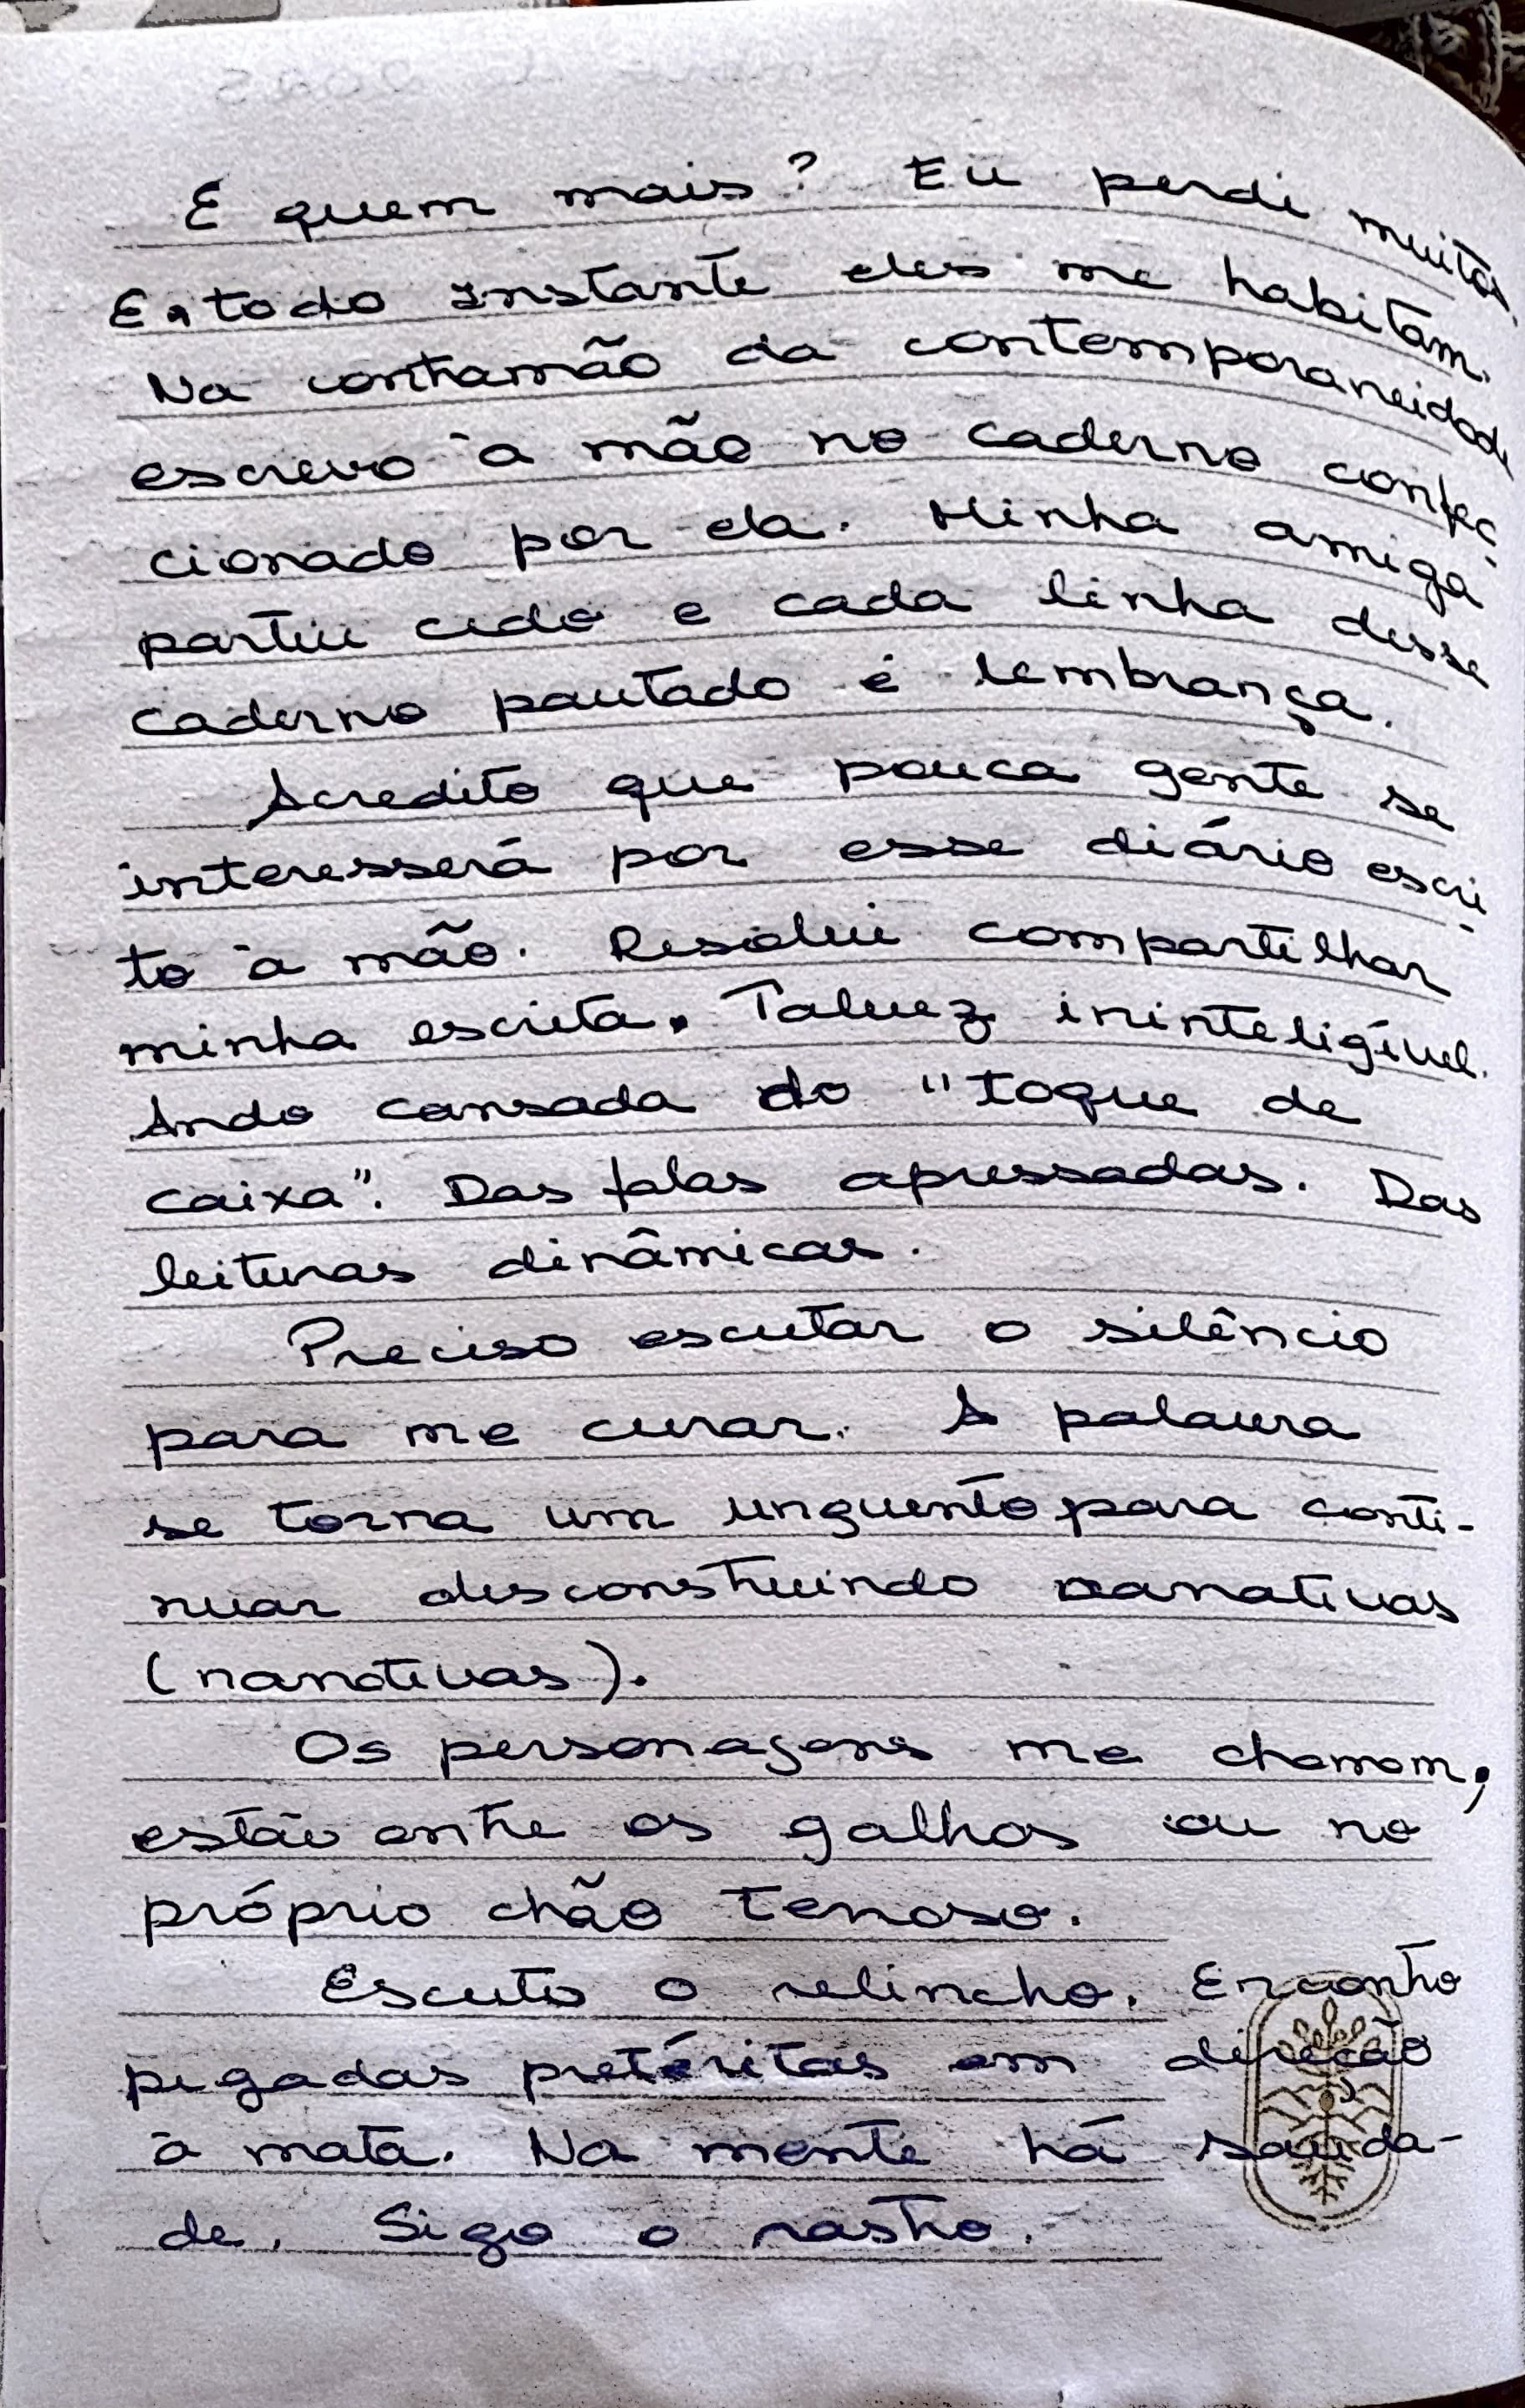 E quem mais? Eu perdi muitos.
E a todo instante eles me habitam.
Na contramão da contemporaneidade
escrevo à mão no caderno confec-
cionado por ela. Minha amiga
partiu cedo e cada linha desse
caderno pautado é lembrança.
Acredito que pouca gente se
interesserá por esse diário escri-
to à mão. Resolvi compartilhar
minha escrita. Talvez ininteligível.
Ando cansada do "toque de
caixa". Das falas apressadas. Das
leituras dinâmicas.
Preciso escutar o silêncio
para me curar. A palavra
se torna um unguento para conti-
nuar desconstruindo narrativas
(narrativas).
Os personagens me chamam,
estão entre os galhos ou no
próprio chão terroso.
Escuto o relincho. Encontro
pegadas pretéritas em direção
à mata. Na mente há sauda-
de. Sigo o rastro.